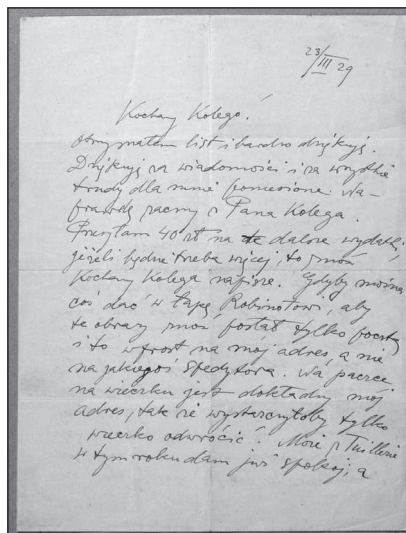 23/III 29
Kochany Kolego!
otrzymałem list i bardzo dziękuję.
Dziękuję za wiadomości i za wszystkie
trudy dla mnie poniesione. Na-
prawdę zacny z Pana Kolega.
Przesyłam 40 zł na te dalsze wydatki,
jeżeli będzie trzeba więcej, to mnie
Kochany Kolega napisze. Gdyby można
coś dać w łapę Robinotowi, aby
te obrazy mnie posłał tylko pocztą
i to wprost na mój adres, a nie
na jakiegoś spedytora. Na paczce
na wieczku jest dokładny mój
adres, tak że wystarczyłoby tylko
wieczko odwrócić! Może z Tuillerie
w tym roku dam już spokój, a